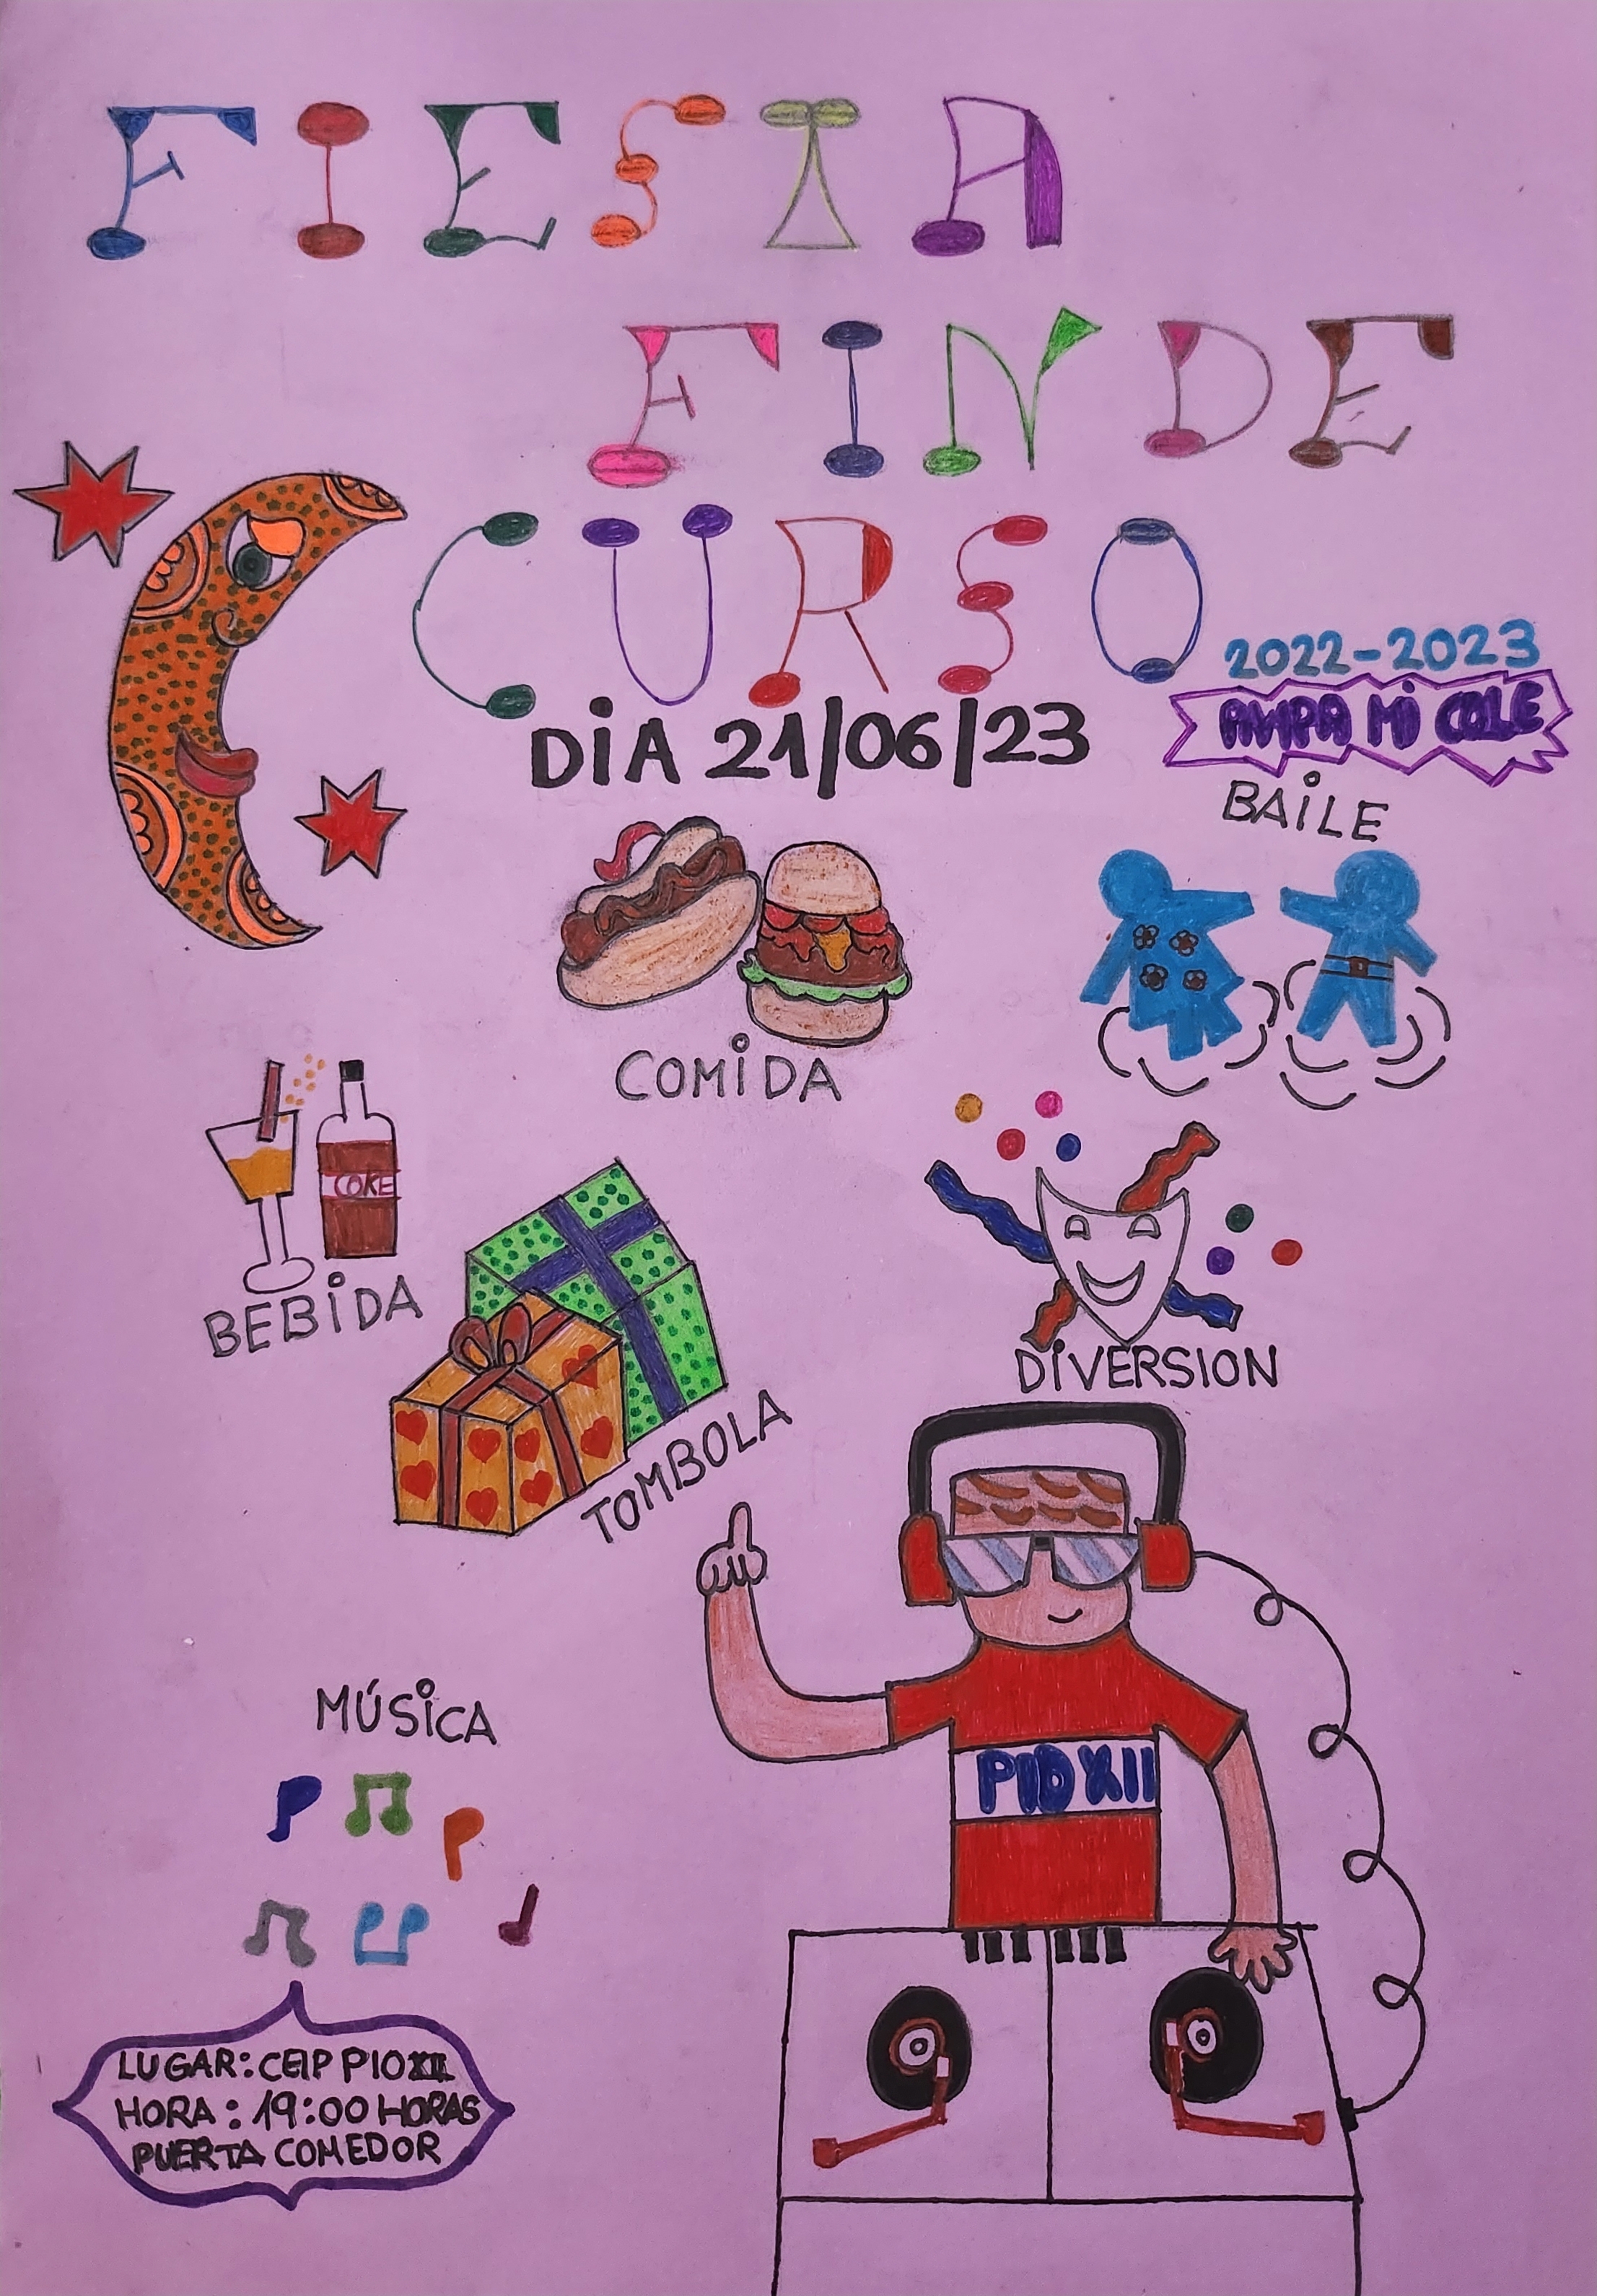 FIESTA
FIN DE
CURSO
2022-2023
AMPA MI COLE
DIA 21/06/23
BAILE
COMIDA
COKE
BEBIDA
DIVERSION
TOMBOLA
MÚSICA
PIO XII
LUGAR: CEIP PIO XII
HORA: 19:00 HORAS
PUERTA COMEDOR